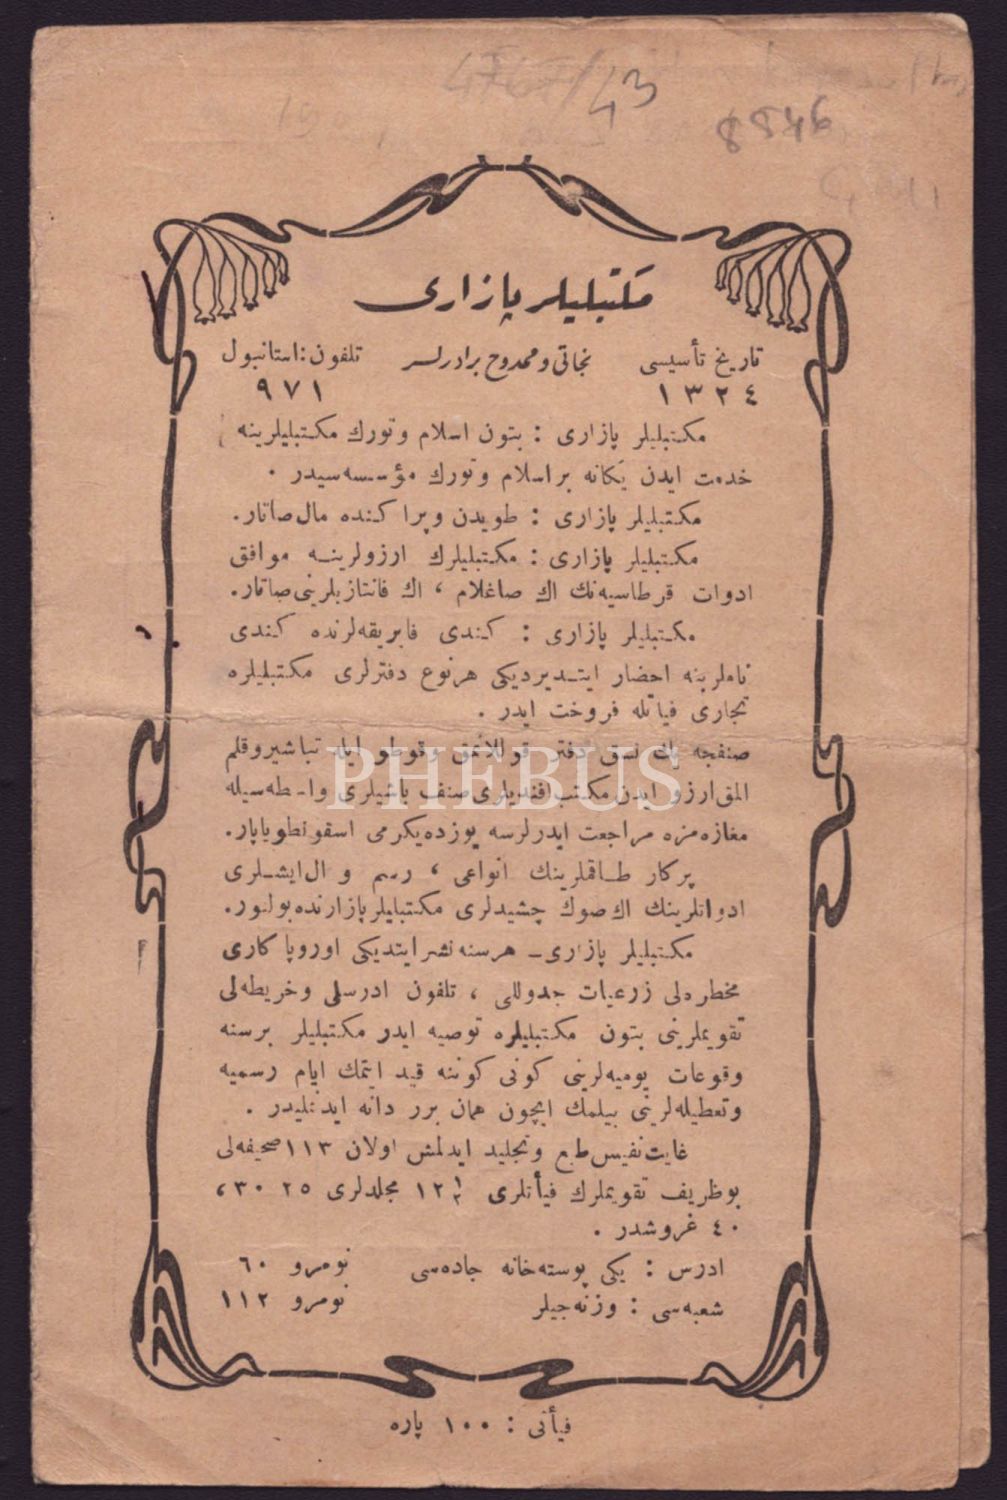 4767/43
مكتبليلر پازاری
تاریخ تأسیسی نجاتی و ممدوح برادرلر تلفون : استانبول
١٣٢٤ ٩٧١
مكتبليلر پازاری : بتون اسلام و تورك مكتبليلرينه
خدمت ايدن يكانه بر اسلام و تورك مؤسسه سيدر ٠
مكتبليلر پازاری : طوپدن و پراكنده مال صاتار.
مكتبليلر پازاری : مكتبليلرك ارزولرينه موافق
ادوات قرطاسيه نك اك صاغلام ، اك فانتازيلرينی صاتار.
مكتبليلر پازاری : كندی فابريقه لرنده كندی
ناملرينه احضار ايتديرديكی هرنوع دفترلری مكتبليلره
تجاری فياتله فروخت ايدر .
صنفجه يك نسق دفتر قوللانمق و قوطو ايله تباشير و قلم
المق ارزو ايدن مكتب افنديلری صنف باشيلری واسطه سيله
مغازه مزه مراجعت ايدرلرسه يوزده يكرمی اسقونطو ياپار.
پركار طاقملرينك انواعی ، رسم و ال ايشلری
ادواتلرينك اك صوك چشيدلری مكتبليلر پازارنده بولنور.
مكتبليلر پازاری ـ هر سنه نشر ايتديكی اوروپا كاری
مخطره لی زرعيات جدوللی ، تلفون ادرسلی و خريطه لی
تقويملرينی بتون مكتبليلره توصيه ايدر مكتبليلر بر سنه
وقوعات يوميه لرينی كونی كوننه قيد ايتمك ايام رسميه
و تعطيله لرينی بيلمك ايچون همان برر دانه ايدنمليدر .
غايت نفيس طبع و تجليد ايدلمش اولان ١١٣ صحيفه لی
بو ظريف تقويملرك فيأتلری ١٢ ١/٢ مجلدلری ٢٥ ٣٠ ،
٤٠ غروشدر .
ادرس : يكی پوسته خانه جاده سی نومرو ٦٠
شعبه سی : وزنه جيلر نومرو ١١٢
فيأتی : ١٠٠ پاره
PHEBUS